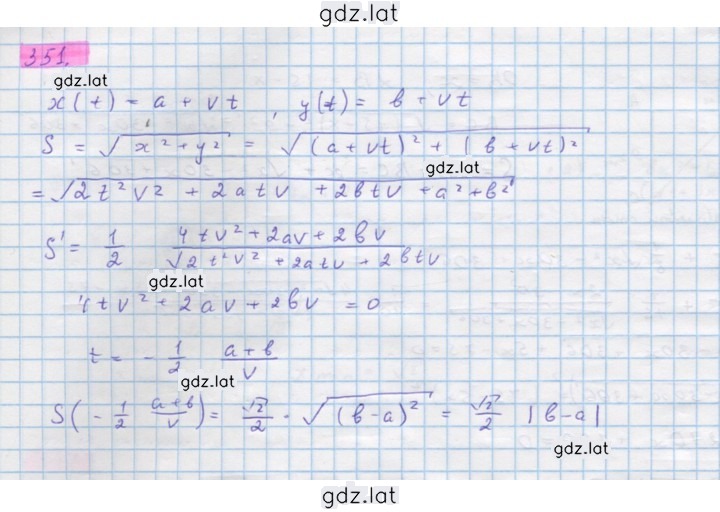 gdz.lat
351.
gdz.lat
x(t) = a + vt , y(t) = b + vt
S = √(x² + y²) = √((a + vt)² + (b + vt)²
gdz.lat
= √(2t²v² + 2atv + 2btv + a² + b²)
S' = 1/2 (4tv² + 2av + 2bv)/√(2t²v² + 2atv + 2btv)
gdz.lat
4tv² + 2av + 2bv = 0
t = - 1/2 (a + b)/v
gdz.lat
S(- 1/2 (a+b)/v) = √2/2 · √((b - a)²) = √2/2 |b - a|
gdz.lat
gdz.lat